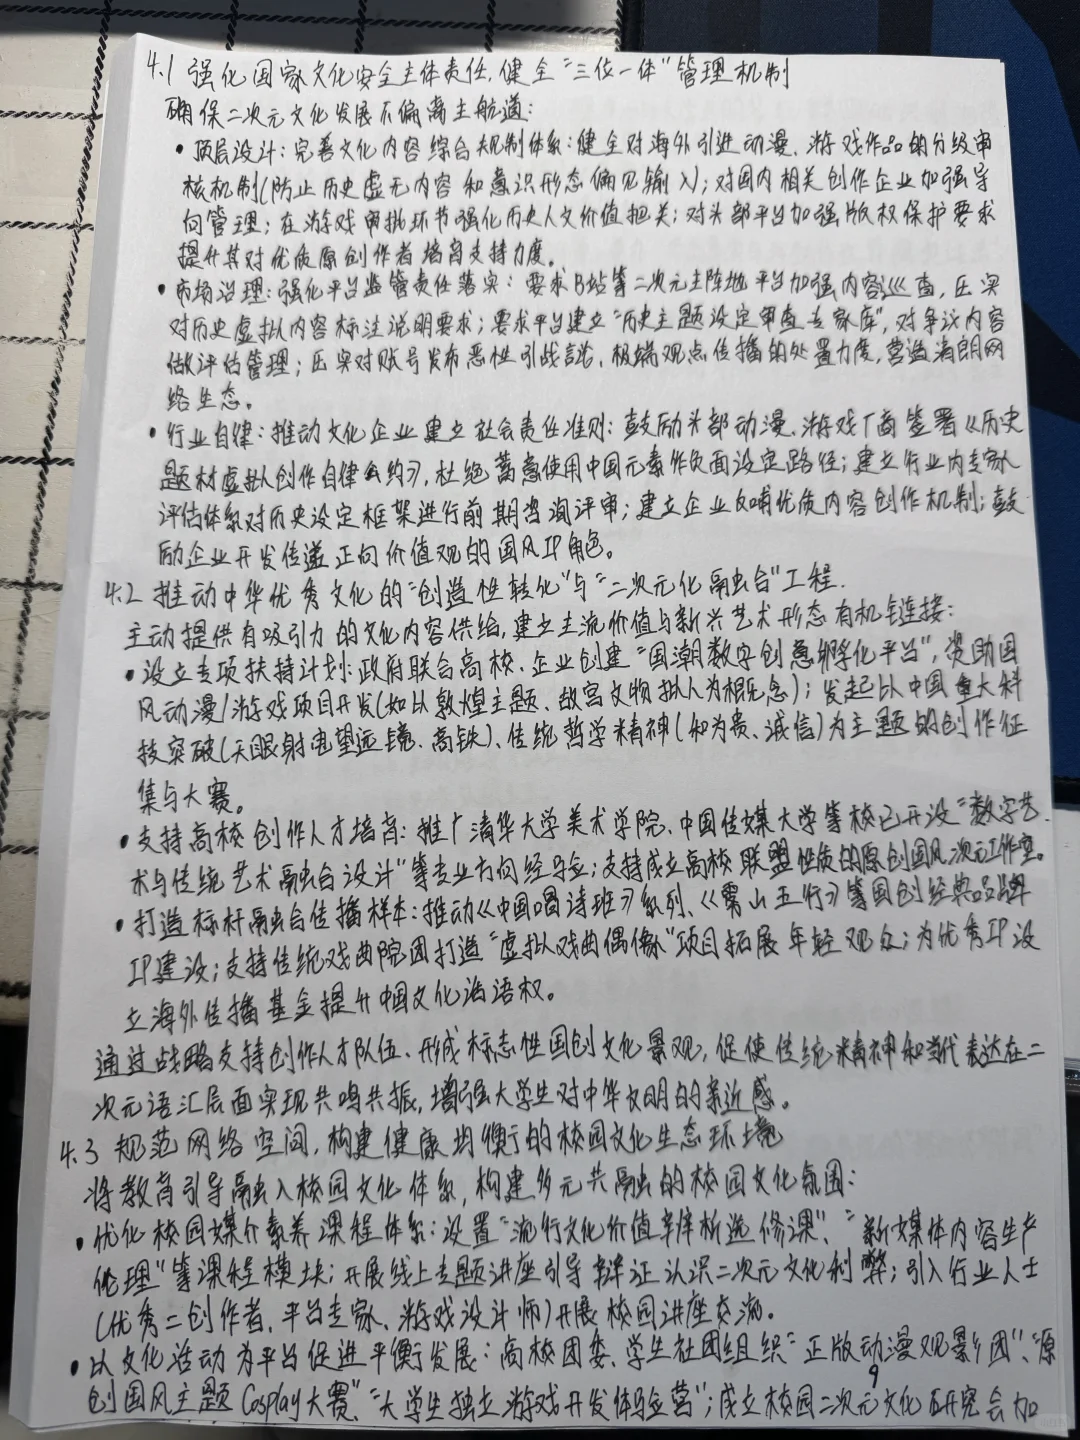 4.1 强化国家文化安全主体责任,健全"三位一体"管理机制
确保二次元文化发展不偏离主航道:
• 顶层设计:完善文化内容综合规制体系:健全对海外引进动漫、游戏作品的分级审
核机制(防止历史虚无内容和意识形态偏见输入);对国内相关创作企业加强导
向管理;在游戏审批环节强化历史人文价值把关;对头部平台加强版权保护要求
提升其对优质原创作者培育支持力度。
• 市场治理:强化平台监管责任落实:要求B站等二次元主阵地平台加强内容巡查,压实
对历史虚拟内容标注说明要求;要求平台建立"历史主题设定审查专家库",对争议内容
做评估管理;压实对账号发布恶性引战言论、极端观点传播的处置力度,营造清朗网
络生态。
• 行业自律:推动文化企业建立社会责任准则:鼓励头部动漫、游戏厂商签署《历史
题材虚拟创作自律公约》,杜绝蓄意使用中国元素作负面设定路径;建立行业内专家
评估体系对历史设定框架进行前期咨询评审;建立企业反哺优质内容创作机制;鼓
励企业开发传递正向价值观的国风IP角色。
4.2 推动中华优秀文化的"创造性转化"与"二次元化融合"工程.
主动提供有吸引力的文化内容供给,建立主流价值与新兴艺术形态有机链接:
• 设立专项扶持计划:政府联合高校、企业创建"国潮数字创意孵化平台",资助国
风动漫/游戏项目开发(如以敦煌主题、故宫文物拟人为概念);发起以中国重大科
技突破(天眼射电望远镜、高铁)、传统哲学精神(和为贵、诚信)为主题的创作征
集与大赛。
• 支持高校创作人才培育:推广清华大学美术学院、中国传媒大学等校已开设"数字艺
术与传统艺术融合设计"等专业方向经验;支持成立高校联盟性质的原创国风二次元工作室。
• 打造标杆融合传播样本:推动《中国唱诗班》系列、《雾山五行》等国创经典品牌
IP建设;支持传统戏曲院团打造"虚拟戏曲偶像"项目拓展年轻观众;为优秀IP设
立海外传播基金提升中国文化话语权。
通过战略支持创作人才队伍、形成标志性国创文化景观,促使传统精神和当代表达在二
次元语汇层面实现共鸣共振,增强大学生对中华文明的亲近感。
4.3 规范网络空间,构建健康均衡的校园文化生态环境
将教育引导融入校园文化体系,构建多元共融的校园文化氛围:
• 优化校园媒介素养课程体系:设置"流行文化价值辨析选修课"、"新媒体内容生产
伦理"等课程模块;开展线上专题讲座引导辩证认识二次元文化利弊;引入行业人士
(优秀二创作者、平台专家、游戏设计师)开展校园讲座交流。
• 以文化活动为平台促进平衡发展:高校团委、学生社团组织"正版动漫观影团"、"原
创国风主题Cosplay大赛"、"大学生独立游戏开发体验营";成立校园二次元文化研究会加
9